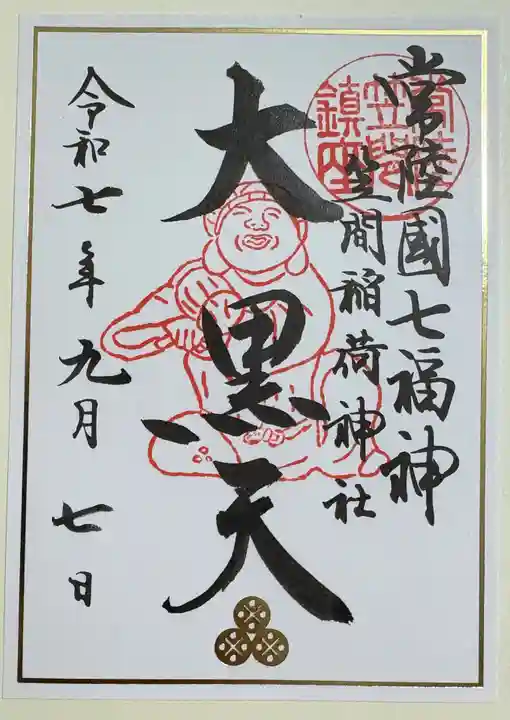 常陸國七福神
笠間稲荷神社
大黒天
令和七年九月七日
常陸
笠間
鎮座